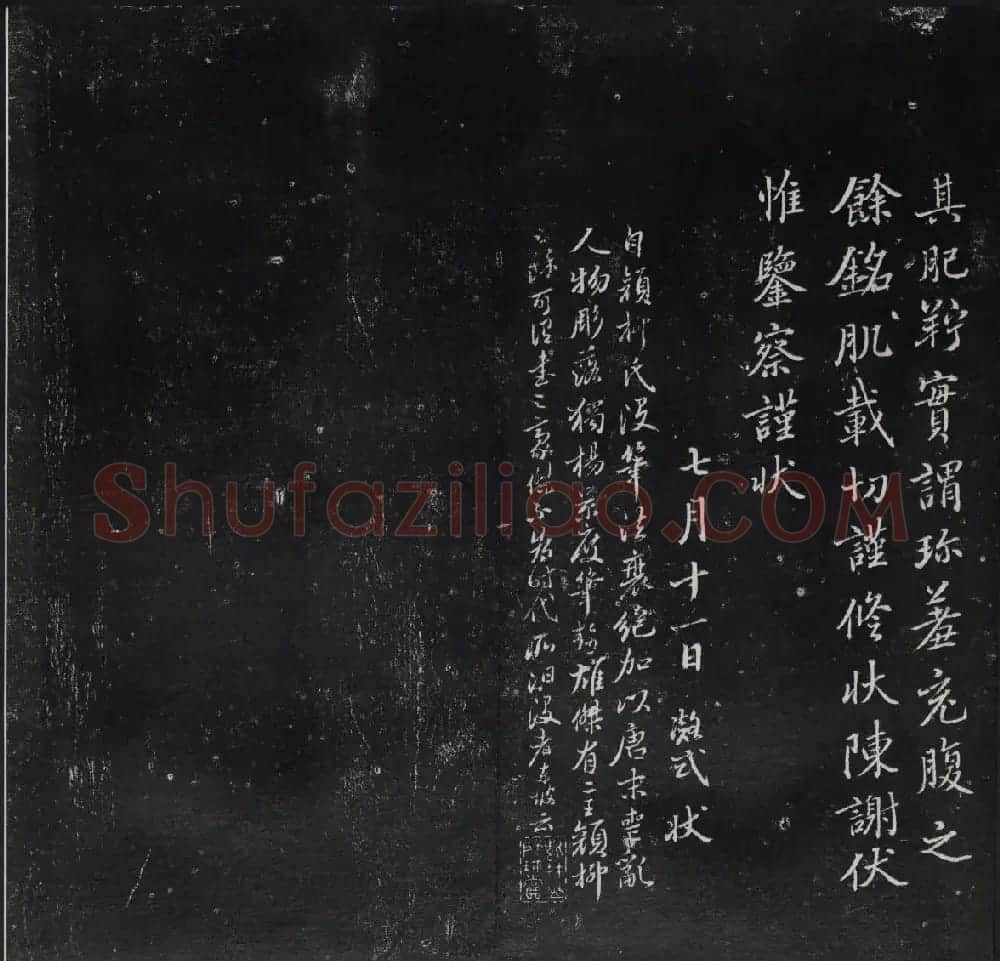 其肥羜實謂珎羞充腹之
餘銘肌載切謹修狀陳謝伏
惟鑒察謹狀
七月十一日 凝式狀
自顏柳氏沒筆法衰絕加以唐末喪亂
人物彫落獨楊公凝度筆迹雄傑有二王顏柳
之餘可謂書之豪傑不為時代所汩沒者東坡云
Shufaziliao.COM